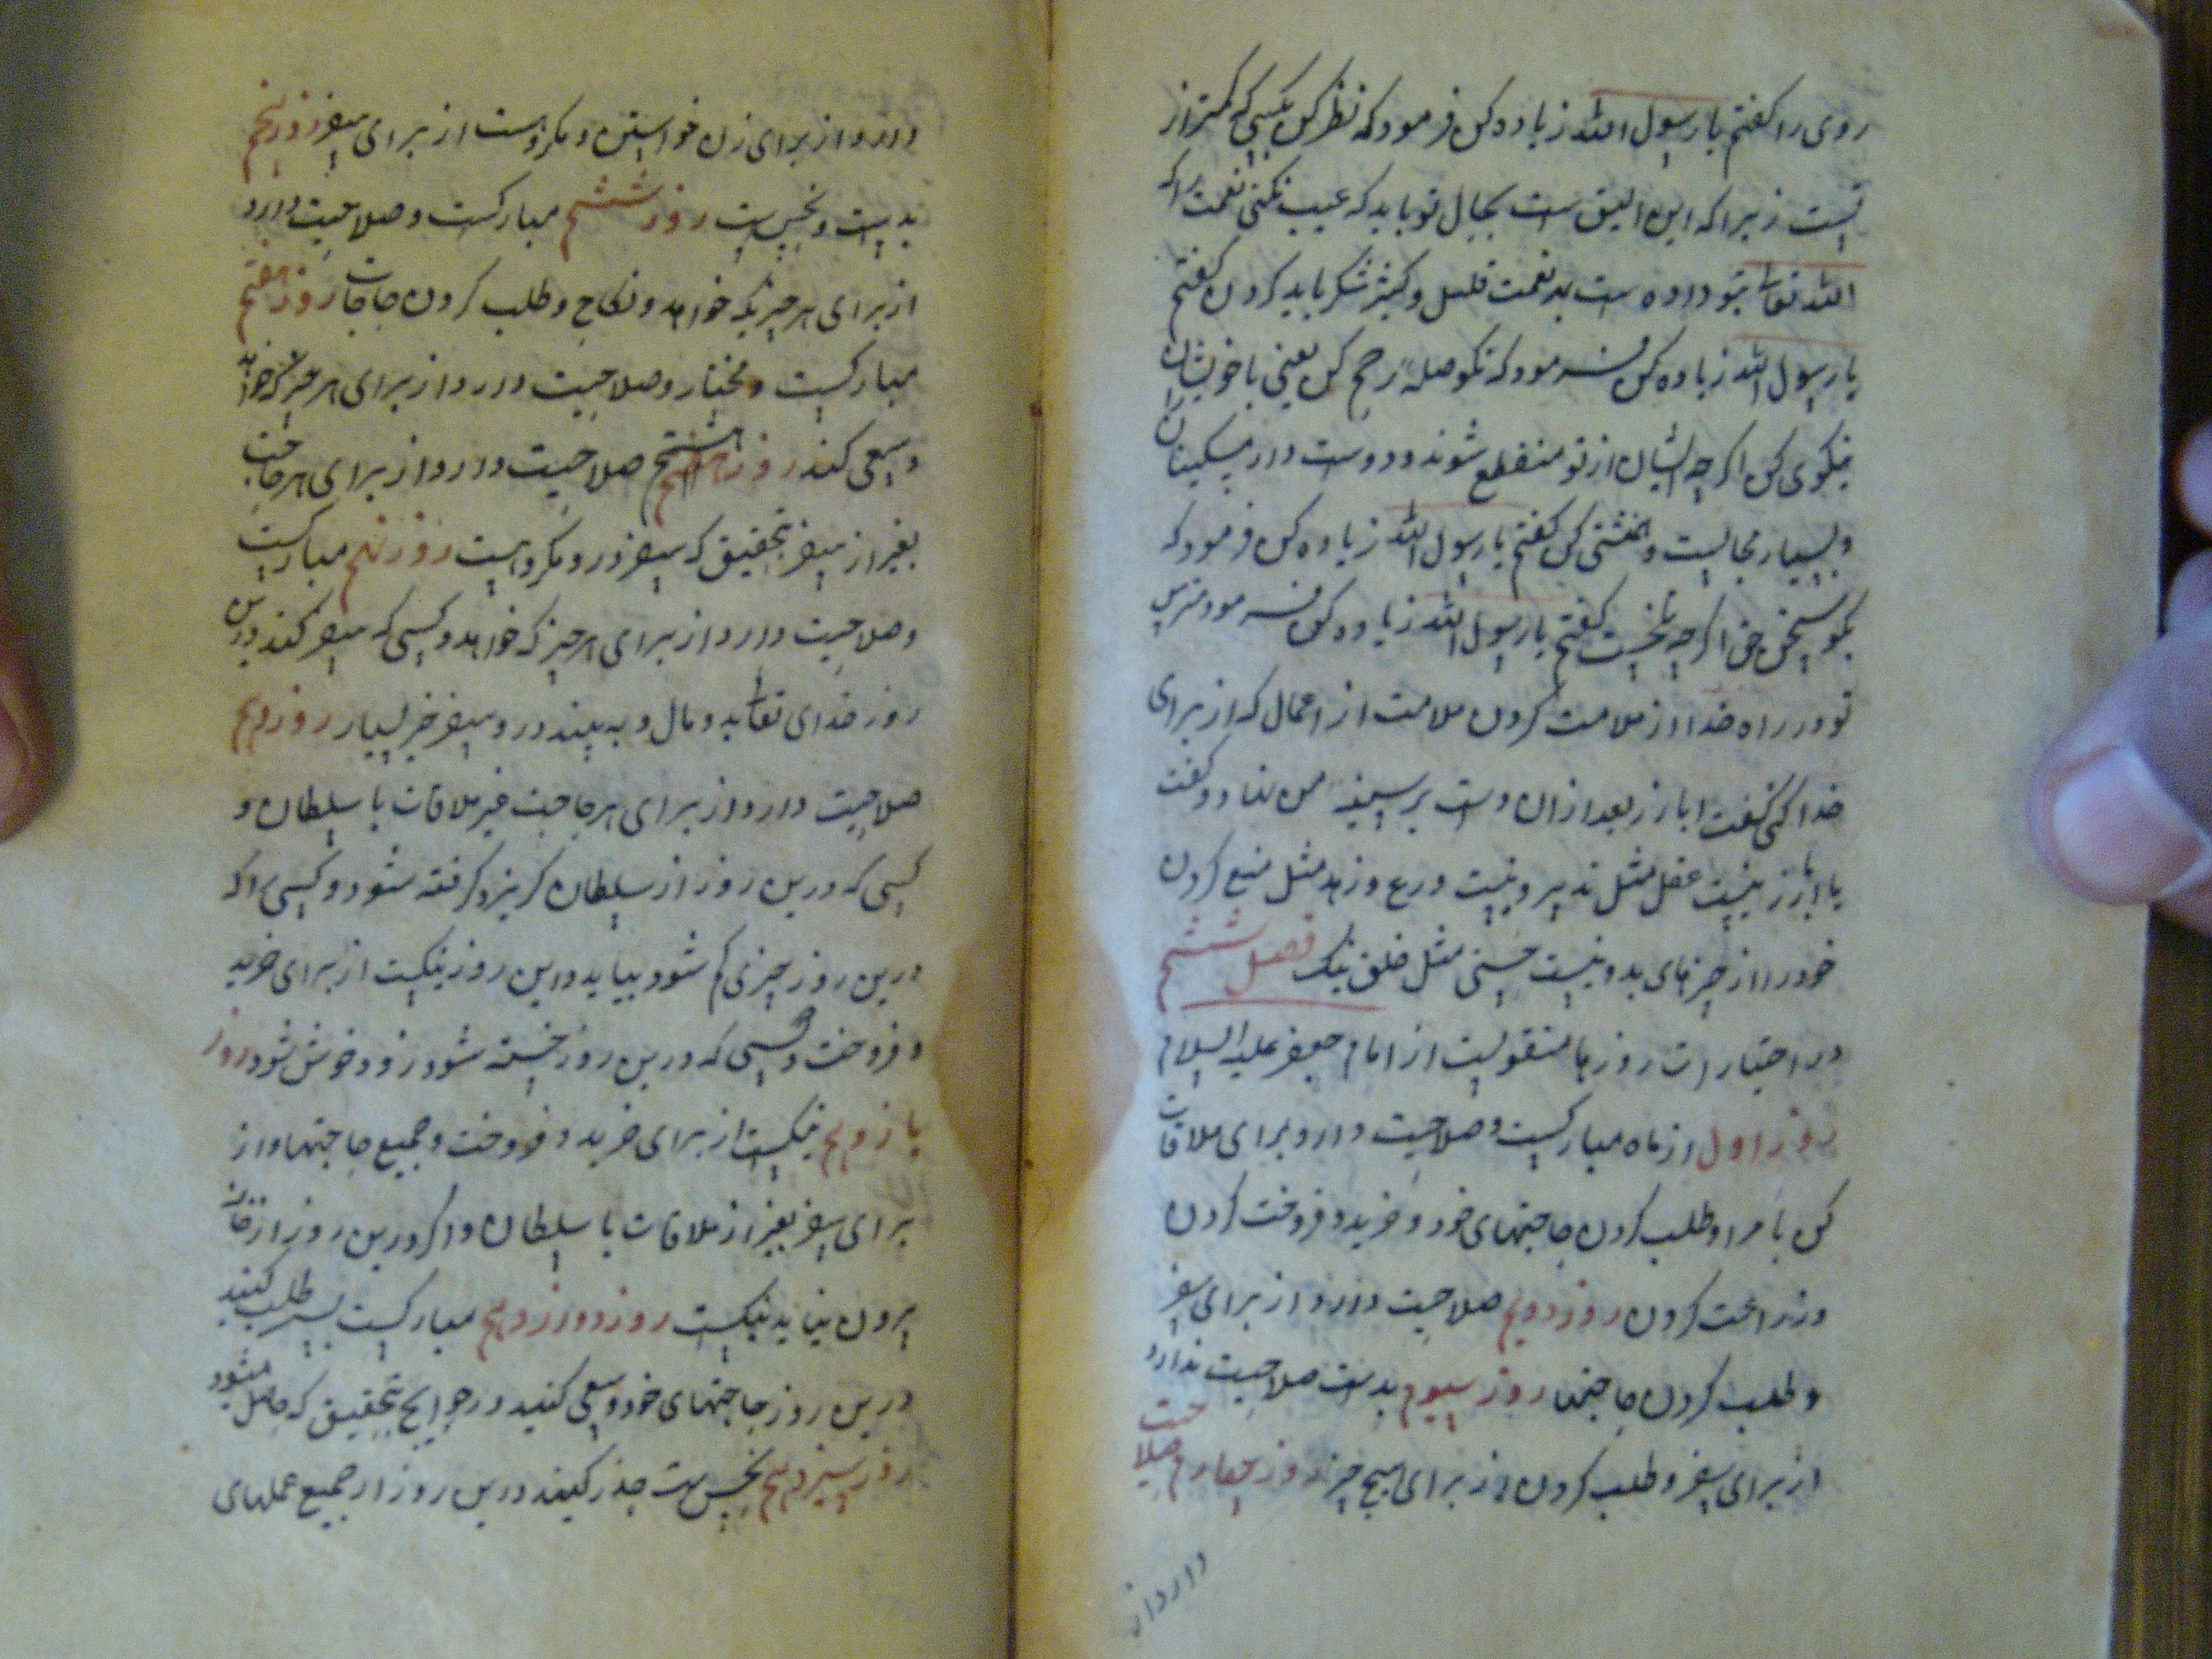 روی را کفتم یا رسول الله زیاده کن فرمود که نظر کن بکسی که کمتر از
تست زیرا که این الیق است بحال تو باید که عیب نکنی نعمت را که
الله تعالی بتو داده است بد نعمت قلیل و کثیر شکر باید کردن کفتم
یا رسول الله زیاده کن فرمود که نکو صله رحم کن یعنی با خویشان
نیکوی کن اکر چه ایشان از تو منقطع شوند و دوست دار مسکینان
و بسیار مجالست و همنشینی کن کفتم یا رسول الله زیاده کن فرمود که
بکو سخن حق اکر چه تلخست کفتم یا رسول الله زیاده کن فرمود مترس
تو در راه خدا از ملامت کردن ملامت از اعمال که از برای
خدا کنی کفت اباذر بعد ازان دست بر سینه من نهاد و کفت
یا اباذر نیست عقل مثل تدبیر و نیست ورع و زهد مثل منع کردن
خود را از چیزهای بد و نیست حسنی مثل خلق نیک فصل ششم
در اختیارات روزها منقولست از امام جعفر علیه السلام
روز اول از ماه مبارکست و صلاحیت دارد برای ملاقات
کن با مرا و طلب کردن حاجتهای خود و خرید و فروخت کردن
و زراعت کردن روز دویم صلاحیت دارد از برای سفر
و طلب کردن حاجتها روز سیوم بد است صلاحیت ندارد
از برای سفر و طلب کردن و از برای هیچ چیز روز چهارم صلاحیت
دارد از
دارد و از برای زن خواستن و مکروست از برای سفر روز پنجم
بدست و نحس است روز ششم مبارکست و صلاحیت دارد
از برای هر چیز که خواهد و نکاح و طلب کردن حاجات روز هفتم
مبارکست و مختار و صلاحیت دارد از برای هر چیز که خواهد
و سعی کند روز هشتم صلاحیت دارد از برای هر حاجت
بغیر از سفر بتحقیق که سفر درو مکروهست روز نهم مبارکست
و صلاحیت دارد از برای هر چیز که خواهد و کسی که سفر کند درین
روز خدای تعالی بدو مال و به بیند درو سفر خیر بسیار روز دهم
صلاحیت دارد از برای هر حاجت غیر ملاقات با سلطان و
کسی که درین روز از سلطان کریزد کرفته شود و کسی را که
درین روز چیزی کم شود بیابد و این روز نیکست از برای خرید
و فروخت و کسی که درین روز خسته شود زود خوش شود روز
یازدهم نیکست از برای خرید و فروخت و جمیع حاجتها و از
برای سفر بغیر از ملاقات با سلطان و اکر درین روز از خانه
بیرون نیاید نیکست روز دوازدهم مبارکست پس طلب کنید
درین روز حاجتهای خود و سعی کنید در حوایج بتحقیق که حاصل میشود
روز سیزدهم نحس است حذر کنید درین روز از جمیع عملهای